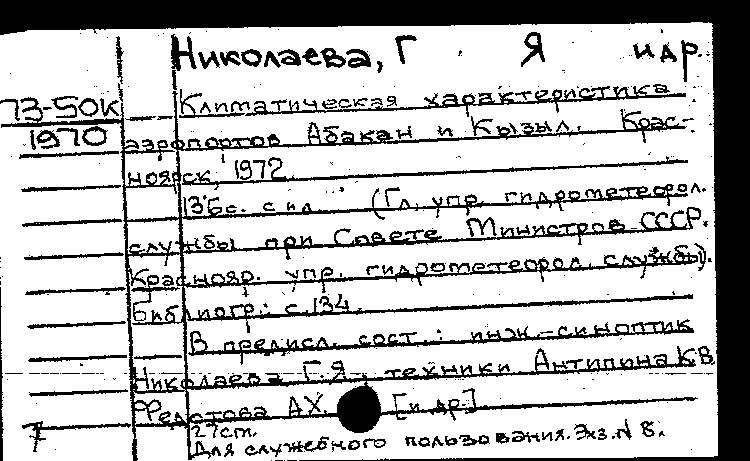 Николаева, Г Я и др.
73-50к Климатическая характеристика
1970 аэропортов Абакан и Кызыл. Крас-
ноярск, 1972.
136с. с ил. (Гл. упр. гидрометеорол.
службы при Совете Министров СССР.
Краснояр. упр. гидрометеорол. службы).
Библиогр.: с. 134.
В предисл. сост.: инж.-синоптик
Николаева Г.Я., техники Антипина КВ
Федотова АХ [и др.]
27cm.
7 Для служебного пользования. Экз. N 8.